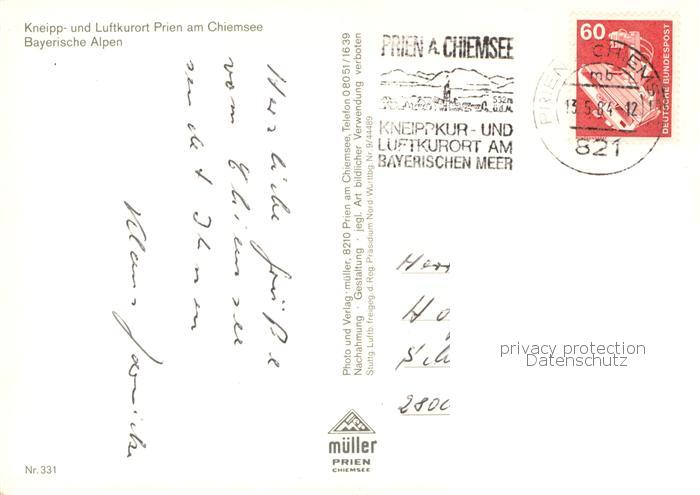 Kneipp- und Luftkurort Prien am Chiemsee
Bayerische Alpen
Herzliche Grüße
vom Chiemsee
sendet Ihnen
Klaus
Nr. 331
Photo und Verlag · müller, 8210 Prien am Chiemsee, Telefon 08051/1639
Nachahmung · Gestaltung · jegl. Art bildlicher Verwendung verboten
Stuttg. Luftb. freigeg. d. Reg. Präsidium Nord-Württbg. Nr. 9/44489
müller
PRIEN
CHIEMSEE
PRIEN A. CHIEMSEE
532m
ü.d.M.
KNEIPPKUR- UND
LUFTKURORT AM
BAYERISCHEN MEER
PRIEN A. CHIEMSEE
mb
13.5.84-12
821
60
DEUTSCHE BUNDESPOST
Herr
Ho
Sch
2800
privacy protection
Datenschutz